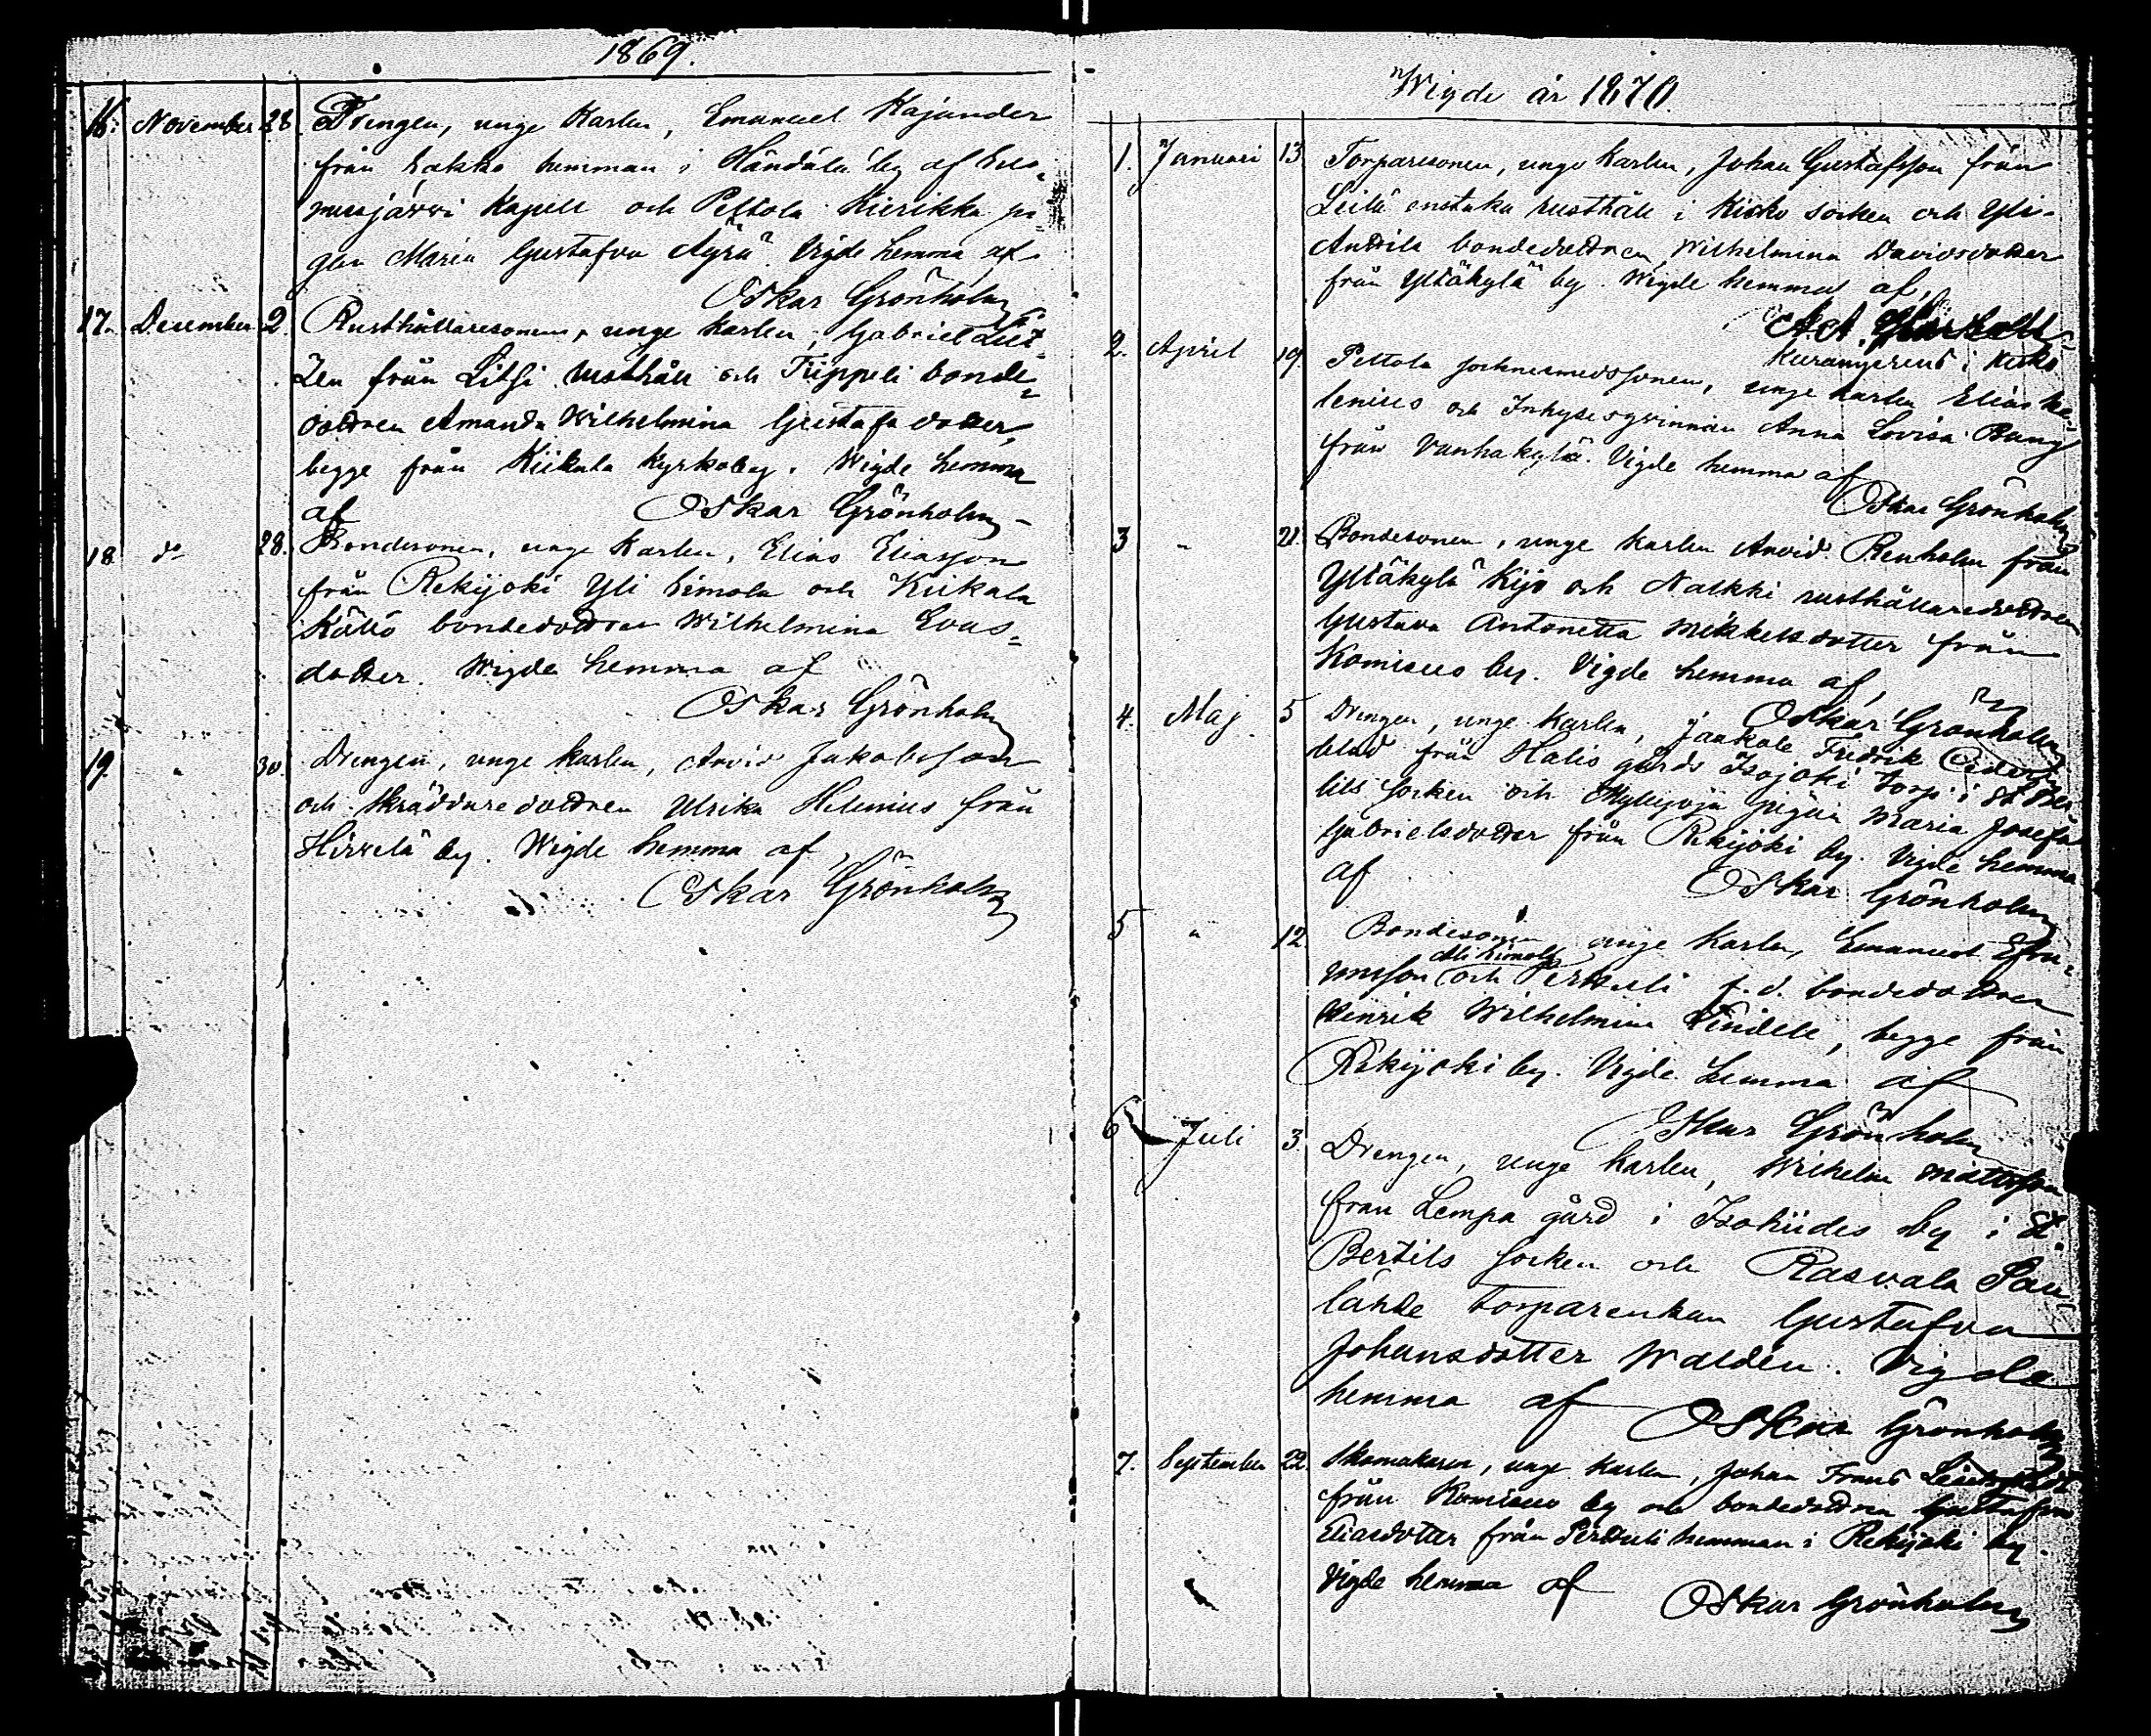 1869.
16. November 28. Drengen, unge Karlen, Emanuel Kajander
från Hakko hemman i Händälä by af Suo=
musjärvi Kapell och Peltola Kierikka pi
gan Maria Gustafva Äyrä. Vigde hemma af
Oskar Grönholm
17. December 2. Rusthållaresonen, unge karlen, Gabriel
från Litsi rusthåll och Trippeli bonde=
dottren Amanda Wilhelmina Gustafsdotter,
begge från Kiikala Kyrkoby. Wigde hemma
af Oskar Grönholm
18 do 28. Bondesonen, unge Karlen, Elias Eliasson
från Rekijoki Yli Simola och Kiikala
Költö bondedottren Wilhelmina Evas=
dotter. Wigde hemma af
Oskar Grönholm
19. " 30. Drengen, unge karlen, Arvid Jakobsson
och Skräddaredottren Ulrika Helenius från
Hirvelä by. Wigde hemma af,
Oskar Grönholm
Wigde år 1870.
1. Januari 13 Torparesonen, unge Karlen, Johan Gustafsson från
Leilä enstaka rusthåll i Kisko socken och Yli-
Anttila bondedottren Wilhelmina Davidsdotter
från Yltäkylä by. Wigde hemma af,
A. A.
i Kisko
2. April 19. Peltola sockensmedssonen, unge karlen Elias He
lenius och Inhysesqvinnan Anna Lovisa Bang
från Vanhakylä. Vigde hemma af
Oskar Grönholm
3 " 21. Bondesonen, unge karlen Arvid Renholm från
Yltäkylä Kijo och Nalkki rusthållaredottren
Gustava Antonetta Mikkelsdotter från
Komisuo by. Vigde hemma af,
Oskar Grönholm
4. Maj 5 Drengen, unge Karlen, Jaakola Fredrik Ceder
blad från Halis gårds Isojoki torp i St Ber
tils socken och Myllyoja pigan Maria Josefa
Gabrielsdotter från Rekijoki by. Vigde hemma
af Oskar Grönholm
5 " 12. Bondesonen, unge Karlen, Emanuel Efra=
Ali Simola
imsson och Perttuli f. d. bondedottren
Henrik Wilhelmina Lindell, begge från
Rekijoki by. Vigde hemma af
Oskar Grönholm
6 Juli 3. Drengen, unge Karlen, Wilhelm Mattsson
från Lempa gård i Isohiides by i St.
Bertils socken och Rasvala Sau=
lähde torparenkan Gustafva
Johansdotter Walden. Vigde
hemma af Oskar Grönholm
7. September 22. Skomakaren, unge Karlen, Johan Frans
från Komisuo by och bondedottren Gustafva
Eliasdotter från Perttuli hemman i Rekijoki by.
Vigde hemma af Oskar Grönholm